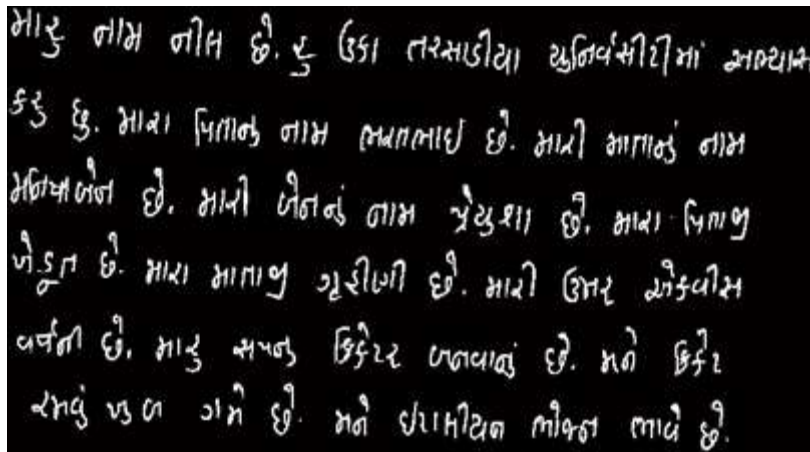 મારુ નામ નીલ છે. હુ ઉકા તરસાડીયા યુનિર્વસીટીમાં અભ્યાસ
કરુ છુ. મારા પિતાનુ નામ ભરતભાઇ છે. મારી માતાનું નામ
છે. મારી બેનનું નામ પ્રેયુશા છે. મારા પિતાજી
ખેડૂત છે. મારા માતાજી ગૃહીણી છે. મારી ઉમર એકવીસ
વર્ષની છે. મારુ સપનુ ક્રિકેટર બનવાનું છે. મને ક્રિકેટ
રમવું ખુબ ગમે છે. મને ઇટાલીયન ભોજન ભાવે છે.